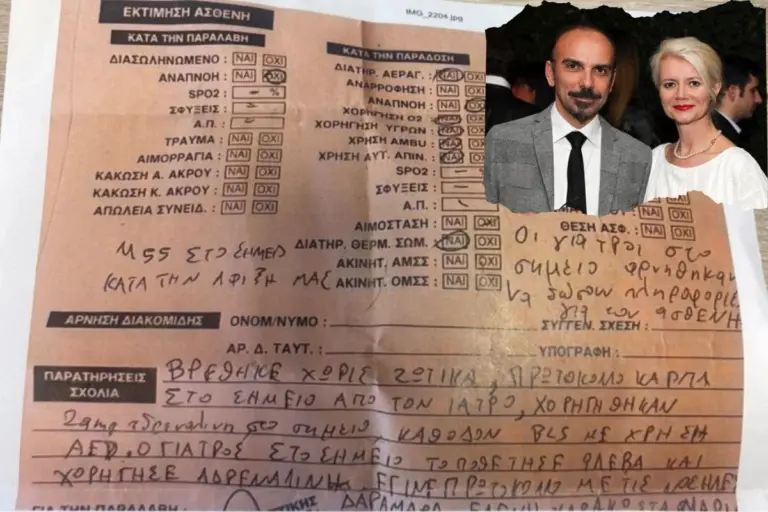 IMG_2204.jpg
ΕΚΤΙΜΗΣΗ ΑΣΘΕΝΗ
ΚΑΤΑ ΤΗΝ ΠΑΡΑΛΑΒΗ
ΔΙΑΣΩΛΗΝΩΜΕΝΟ : ΝΑΙ ΟΧΙ
ΑΝΑΠΝΟΗ : ΝΑΙ ΟΧΙ
SPO2 : - %
ΣΦΥΞΕΙΣ : -
Α.Π. : -
ΤΡΑΥΜΑ : ΝΑΙ ΟΧΙ
ΑΙΜΟΡΡΑΓΙΑ : ΝΑΙ ΟΧΙ
ΚΑΚΩΣΗ Α. ΑΚΡΟΥ : ΝΑΙ ΟΧΙ
ΚΑΚΩΣΗ Κ. ΑΚΡΟΥ : ΝΑΙ ΟΧΙ
ΑΠΩΛΕΙΑ ΣΥΝΕΙΔ. : ΝΑΙ ΟΧΙ
Μ55 ΣΤΟ ΣΗΜΕΙΟ
ΚΑΤΑ ΤΗΝ ΑΦΙΞΗ ΜΑΣ
ΚΑΤΑ ΤΗΝ ΠΑΡΑΔΟΣΗ
ΔΙΑΤΗΡ. ΑΕΡΑΓ. : ΝΑΙ ΟΧΙ
ΑΝΑΡΡΟΦΗΣΗ : ΝΑΙ ΟΧΙ
ΑΝΑΠΝΟΗ : ΝΑΙ ΟΧΙ
ΧΟΡΗΓΗΣΗ Ο2 : ΝΑΙ ΟΧΙ
ΧΟΡΗΓΗΣΗ ΥΓΡΩΝ : ΝΑΙ ΟΧΙ
ΧΡΗΣΗ AMBU : ΝΑΙ ΟΧΙ
ΧΡΗΣΗ ΑΥΤ. ΑΠΙΝ. : ΝΑΙ ΟΧΙ
SPO2 : -
ΣΦΥΞΕΙΣ : -
Α.Π. : -
ΑΙΜΟΣΤΑΣΗ : ΝΑΙ ΟΧΙ
ΔΙΑΤΗΡ. ΘΕΡΜ. ΣΩΜ. : ΝΑΙ ΟΧΙ
ΑΚΙΝΗΤ. ΑΜΣΣ : ΝΑΙ ΟΧΙ
ΑΚΙΝΗΤ. ΟΜΣΣ : ΝΑΙ ΟΧΙ
ΝΑΙ ΟΧΙ
ΘΕΣΗ ΑΣΦ. : ΝΑΙ ΟΧΙ
Οι γιατροι στο
σημειο αρνηθηκαν
Να δωσουν πληροφοριες
για τον ασθΕΝΗ
ΑΡΝΗΣΗ ΔΙΑΚΟΜΙΔΗΣ ΟΝΟΜ/ΝΥΜΟ : ΣΥΓΓΕΝ. ΣΧΕΣΗ :
ΑΡ. Δ. ΤΑΥΤ. : ΥΠΟΓΡΑΦΗ :
ΠΑΡΑΤΗΡΗΣΕΙΣ
ΣΧΟΛΙΑ
ΒΡΕΘΗΚΕ ΧΩΡΙΣ ΖΩΤΙΚΑ, ΠΡΩΤΟΚΟΛΛΟ ΚΑΡΠΑ
ΣΤΟ ΣΗΜΕΙΟ ΑΠΟ ΤΟΝ ΙΑΤΡΟ, ΧΟΡΗΓΗΘΗΚΑΝ
2amp αδρεναλινη στο σημειο, ΚΑΘΟΔΟΝ BLS ΜΕ ΧΡΗΣΗ
AED. Ο ΓΙΑΤΡΟΣ ΣΤΟ ΣΗΜΕΙΟ ΤΟΠΟΘΕΤΗΣΕ ΦΛΕΒΑ ΚΑΙ
ΧΟΡΗΓΗΣΕ ΑΔΡΕΝΑΛΙΝΗ. ΕΓΙΝΕ ΠΡΩΤΟΚΟΛΛΟ ΜΕ ΤΙΣ
ΓΙΑ ΤΗΝ ΠΑΡΑΛΑΒΗ :